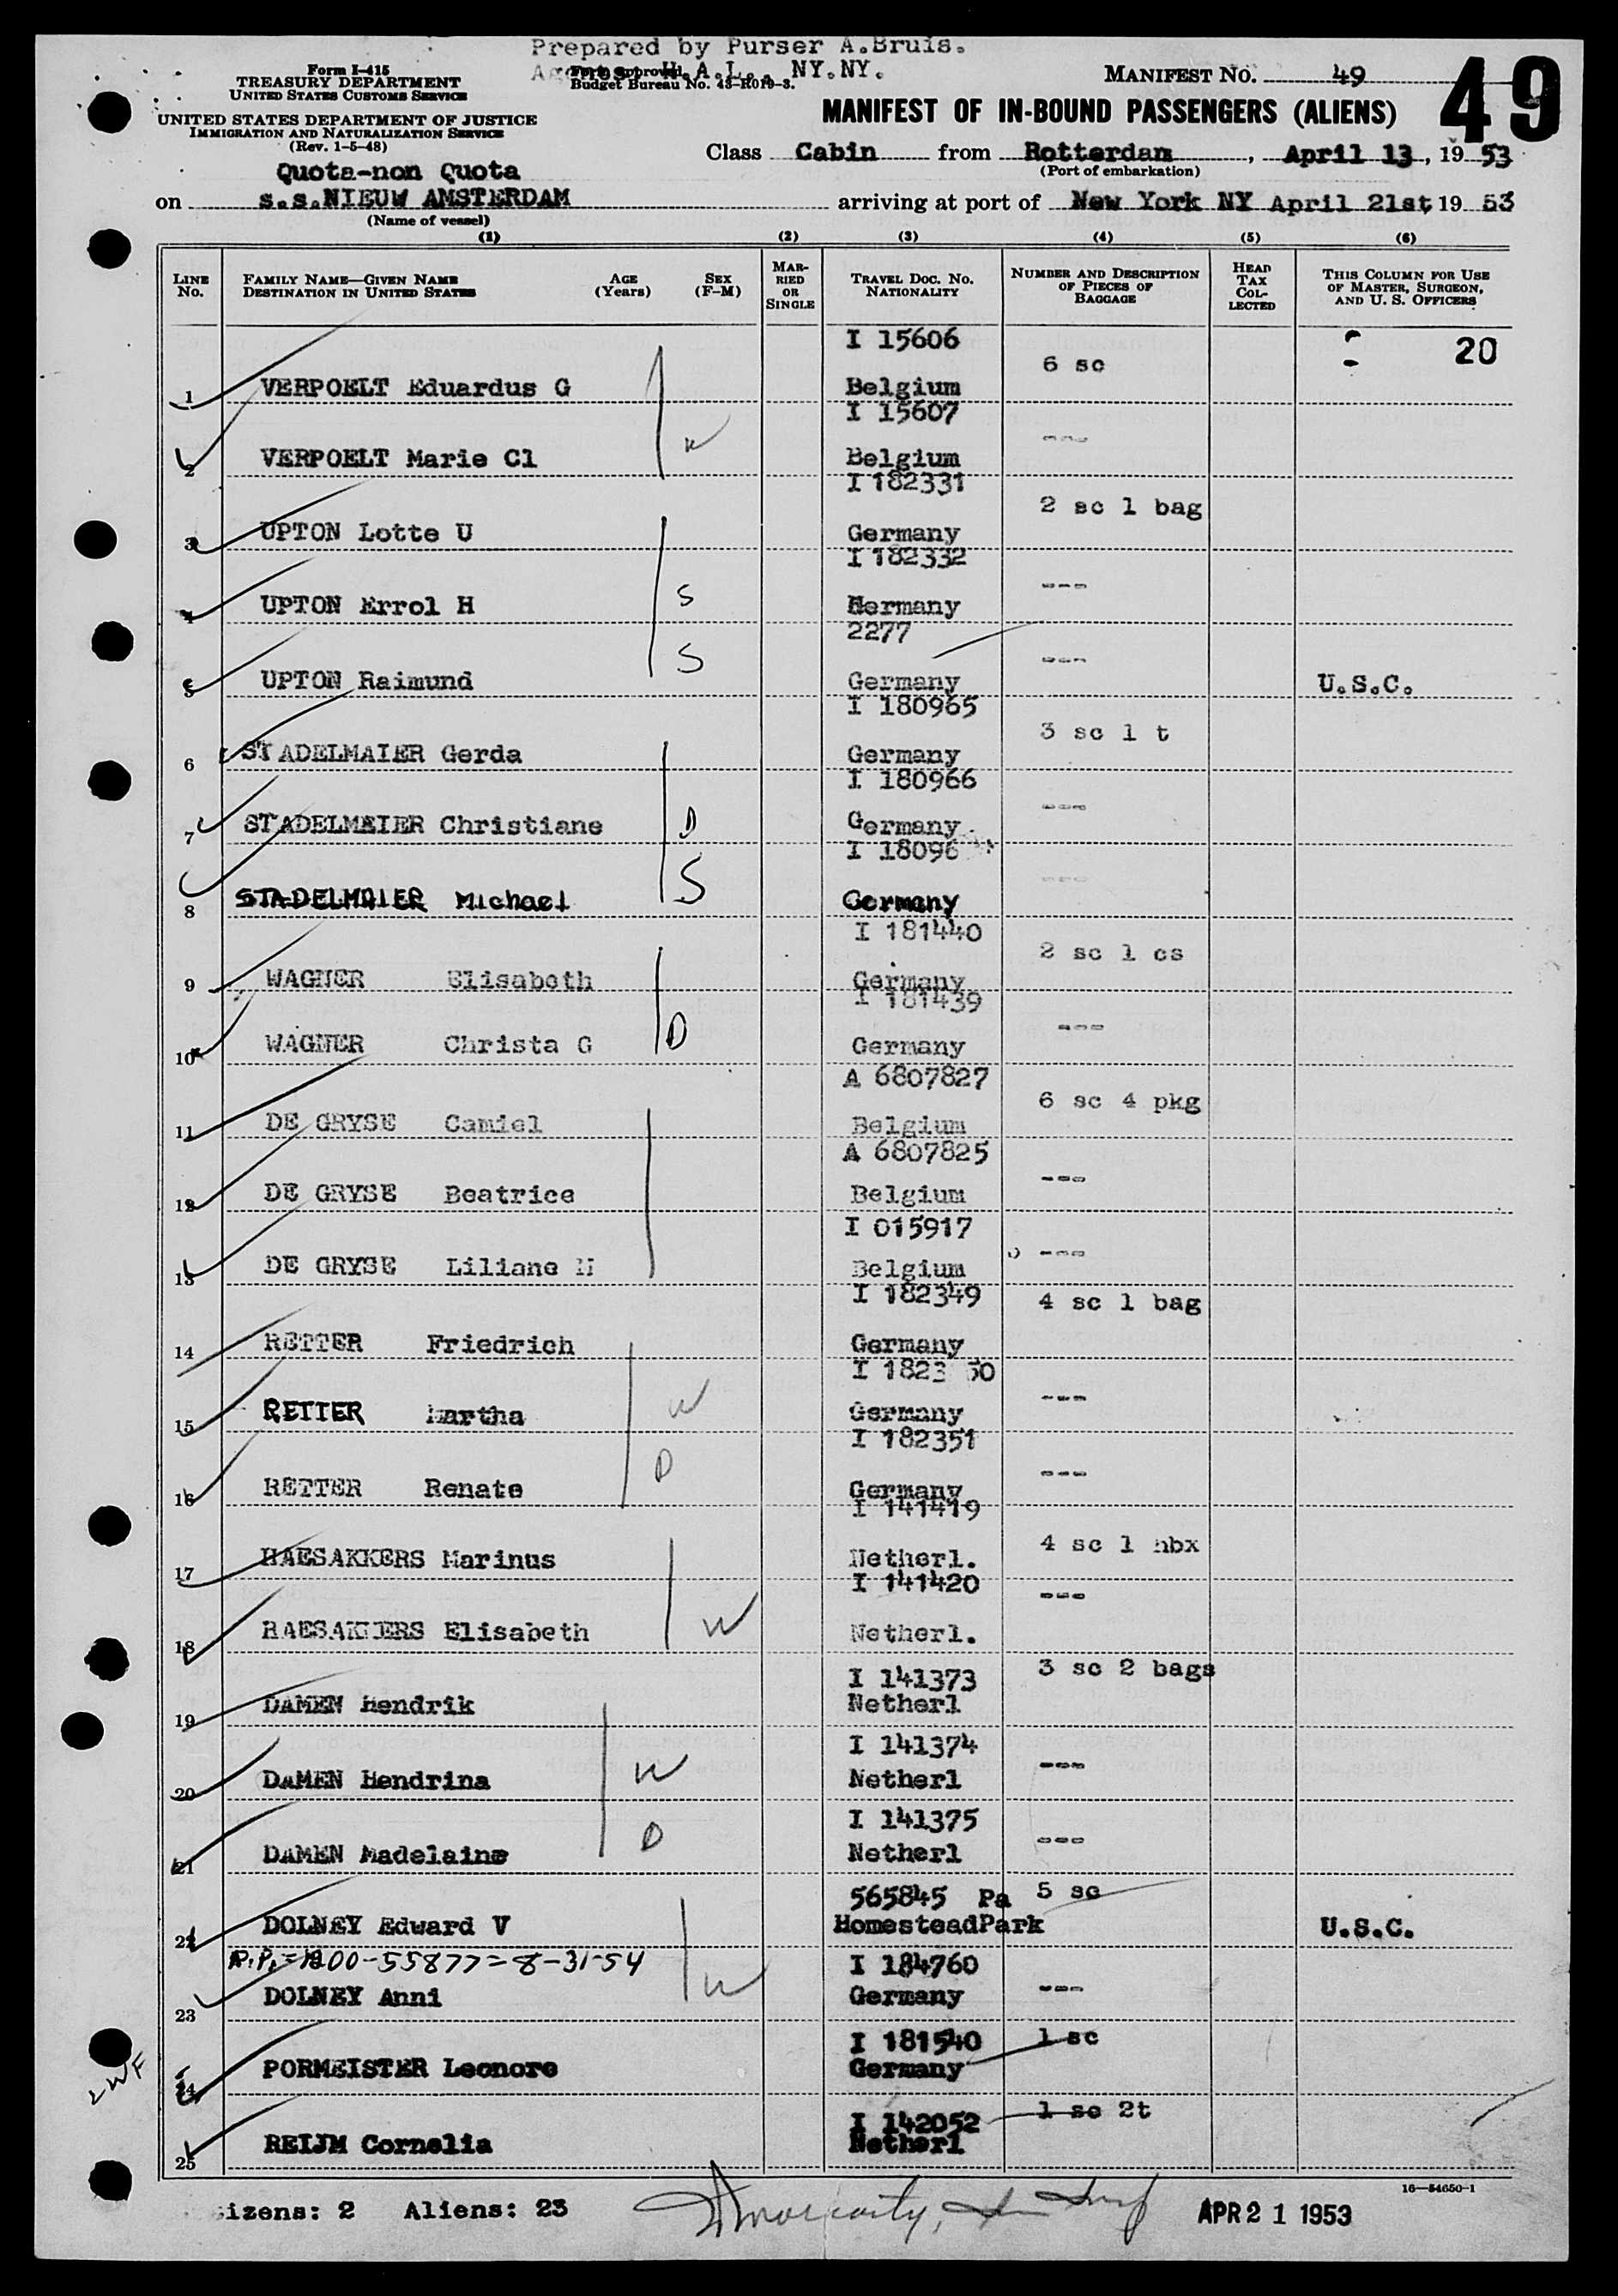 Prepared by Purser A.Bruis.
H.A.L., NY.NY.
Form I-415
TREASURY DEPARTMENT
UNITED STATES CUSTOMS SERVICE
Form approved.
Budget Bureau No. 43-R019-3.
MANIFEST NO. 49
49
UNITED STATES DEPARTMENT OF JUSTICE
IMMIGRATION AND NATURALIZATION SERVICE
(Rev. 1-5-48)
MANIFEST OF IN-BOUND PASSENGERS (ALIENS)
Quota-non Quota
Class Cabin from Rotterdam, April 13, 1953
(Port of embarkation)
on s.s.NIEUW AMSTERDAM arriving at port of New York NY April 21st, 1953
(Name of vessel)
(1) (2) (3) (4) (5) (6)
LINE NO.
FAMILY NAME—GIVEN NAME
DESTINATION IN UNITED STATES
AGE (Years)
SEX (F-M)
MARRIED OR SINGLE
TRAVEL DOC. NO.
NATIONALITY
NUMBER AND DESCRIPTION OF PIECES OF BAGGAGE
HEAD TAX COLLECTED
THIS COLUMN FOR USE OF MASTER, SURGEON, AND U. S. OFFICERS
I 15606 6 sc 20
1 VERPOELT Eduardus G Belgium
I 15607 ---
2 VERPOELT Marie Cl W Belgium
I 182331 2 sc 1 bag
3 UPTON Lotte U Germany
I 182332 ---
4 UPTON Errol H S Germany
2277 ---
5 UPTON Raimund S Germany U.S.C.
I 180965 3 sc 1 t
6 STADELMAIER Gerda Germany
I 180966 ---
7 STADELMAIER Christiane D Germany
I 18096 ---
8 STADELMAIER Michael S Germany
I 181440 2 sc 1 cs
9 WAGNER Elisabeth Germany
I 181439 ---
10 WAGNER Christa G D Germany
A 6807827 6 sc 4 pkg
11 DE GRYSE Camiel Belgium
A 6807825 ---
12 DE GRYSE Beatrice Belgium
I 015917 ---
13 DE GRYSE Liliane M Belgium
I 182349 4 sc 1 bag
14 RETTER Friedrich Germany
I 182350 ---
15 RETTER Martha W Germany
I 182351 ---
16 RETTER Renate D Germany
I 141419 4 sc 1 hbx
17 RAESAKKERS Marinus Netherl.
I 141420 ---
18 RAESAKKERS Elisabeth W Netherl.
I 141373 3 sc 2 bags
19 DAMEN Hendrik Netherl
I 141374 ---
20 DAMEN Hendrina W Netherl
I 141375 ---
21 DAMEN Madelaine D Netherl
565845 Pa 5 sc
22 DOLNEY Edward V HomesteadPark U.S.C.
R.P.=1200-55877=8-31-54 I 184760 ---
23 DOLNEY Anni W Germany
I 181540 1 sc
24 PORMEISTER Leonore Germany
I 142052 1 sc 2t
25 REIJM Cornelia Netherl
16—54650-1
izens: 2 Aliens: 23
APR 21 1953